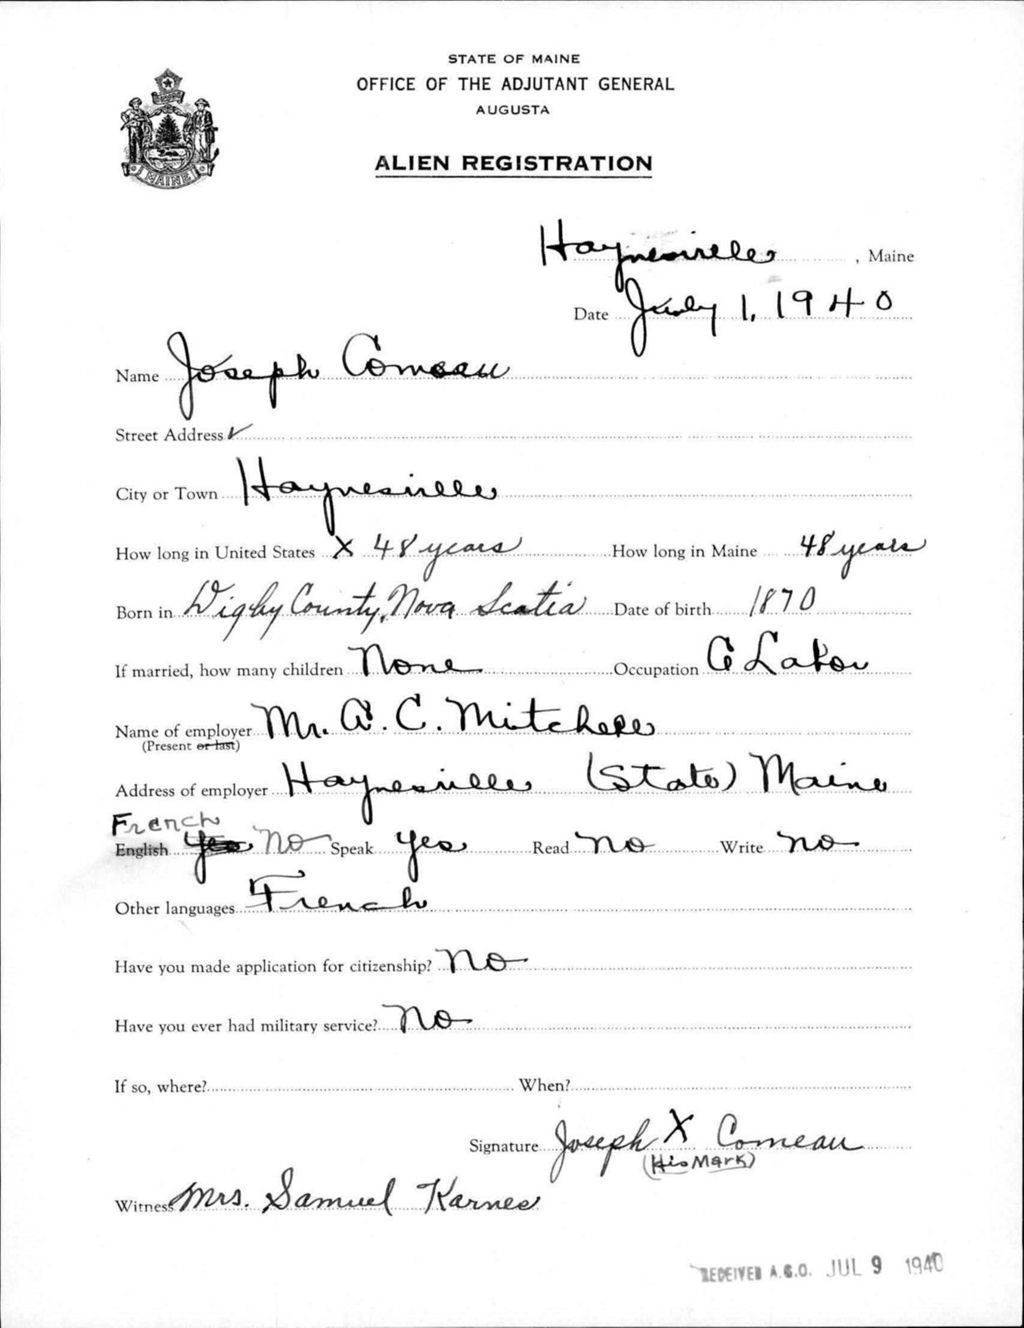 STATE OF MAINE
OFFICE OF THE ADJUTANT GENERAL
AUGUSTA
ALIEN REGISTRATION
MAINE
Haynesville, Maine
Date July 1, 1940
Name Joseph Comeau
Street Address ✓
City or Town Haynesville
How long in United States X 48 years How long in Maine 48 years
Born in Digby County, Nova Scotia Date of birth 1870
If married, how many children None Occupation Labor
Name of employer Mr. A. C. Mitchell
(Present or last)
Address of employer Haynesville (State) Maine
French
English Yes No Speak Yes Read No Write No
Other languages French
Have you made application for citizenship? No
Have you ever had military service? No
If so, where? When?
Signature Joseph X Comeau
(His Mark)
Witness Mrs. Samuel Karnes
RECEIVED A.G.O. JUL 9 1940